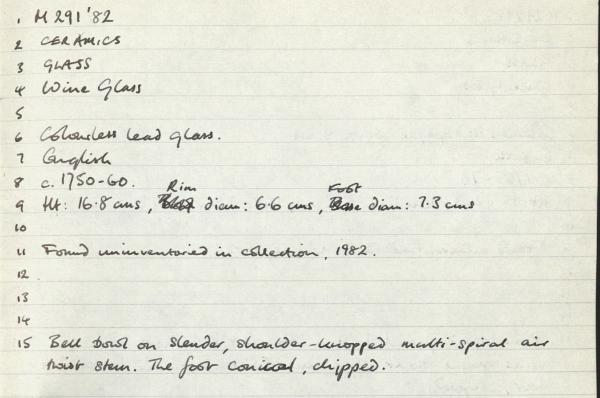 1 M 291'82
2 CERAMICS
3 GLASS
4 Wine Glass
5
6 Colourless lead glass.
7 English
8 c. 1750-60.
9 Ht: 16.8 cms, Rim diam: 6.6 cms, Foot diam: 7.3 cms
10
11 Found uninventoried in collection, 1982.
12
13
14
15 Bell bowl on slender, shoulder-knopped multi-spiral air
twist stem. The foot conical, chipped.